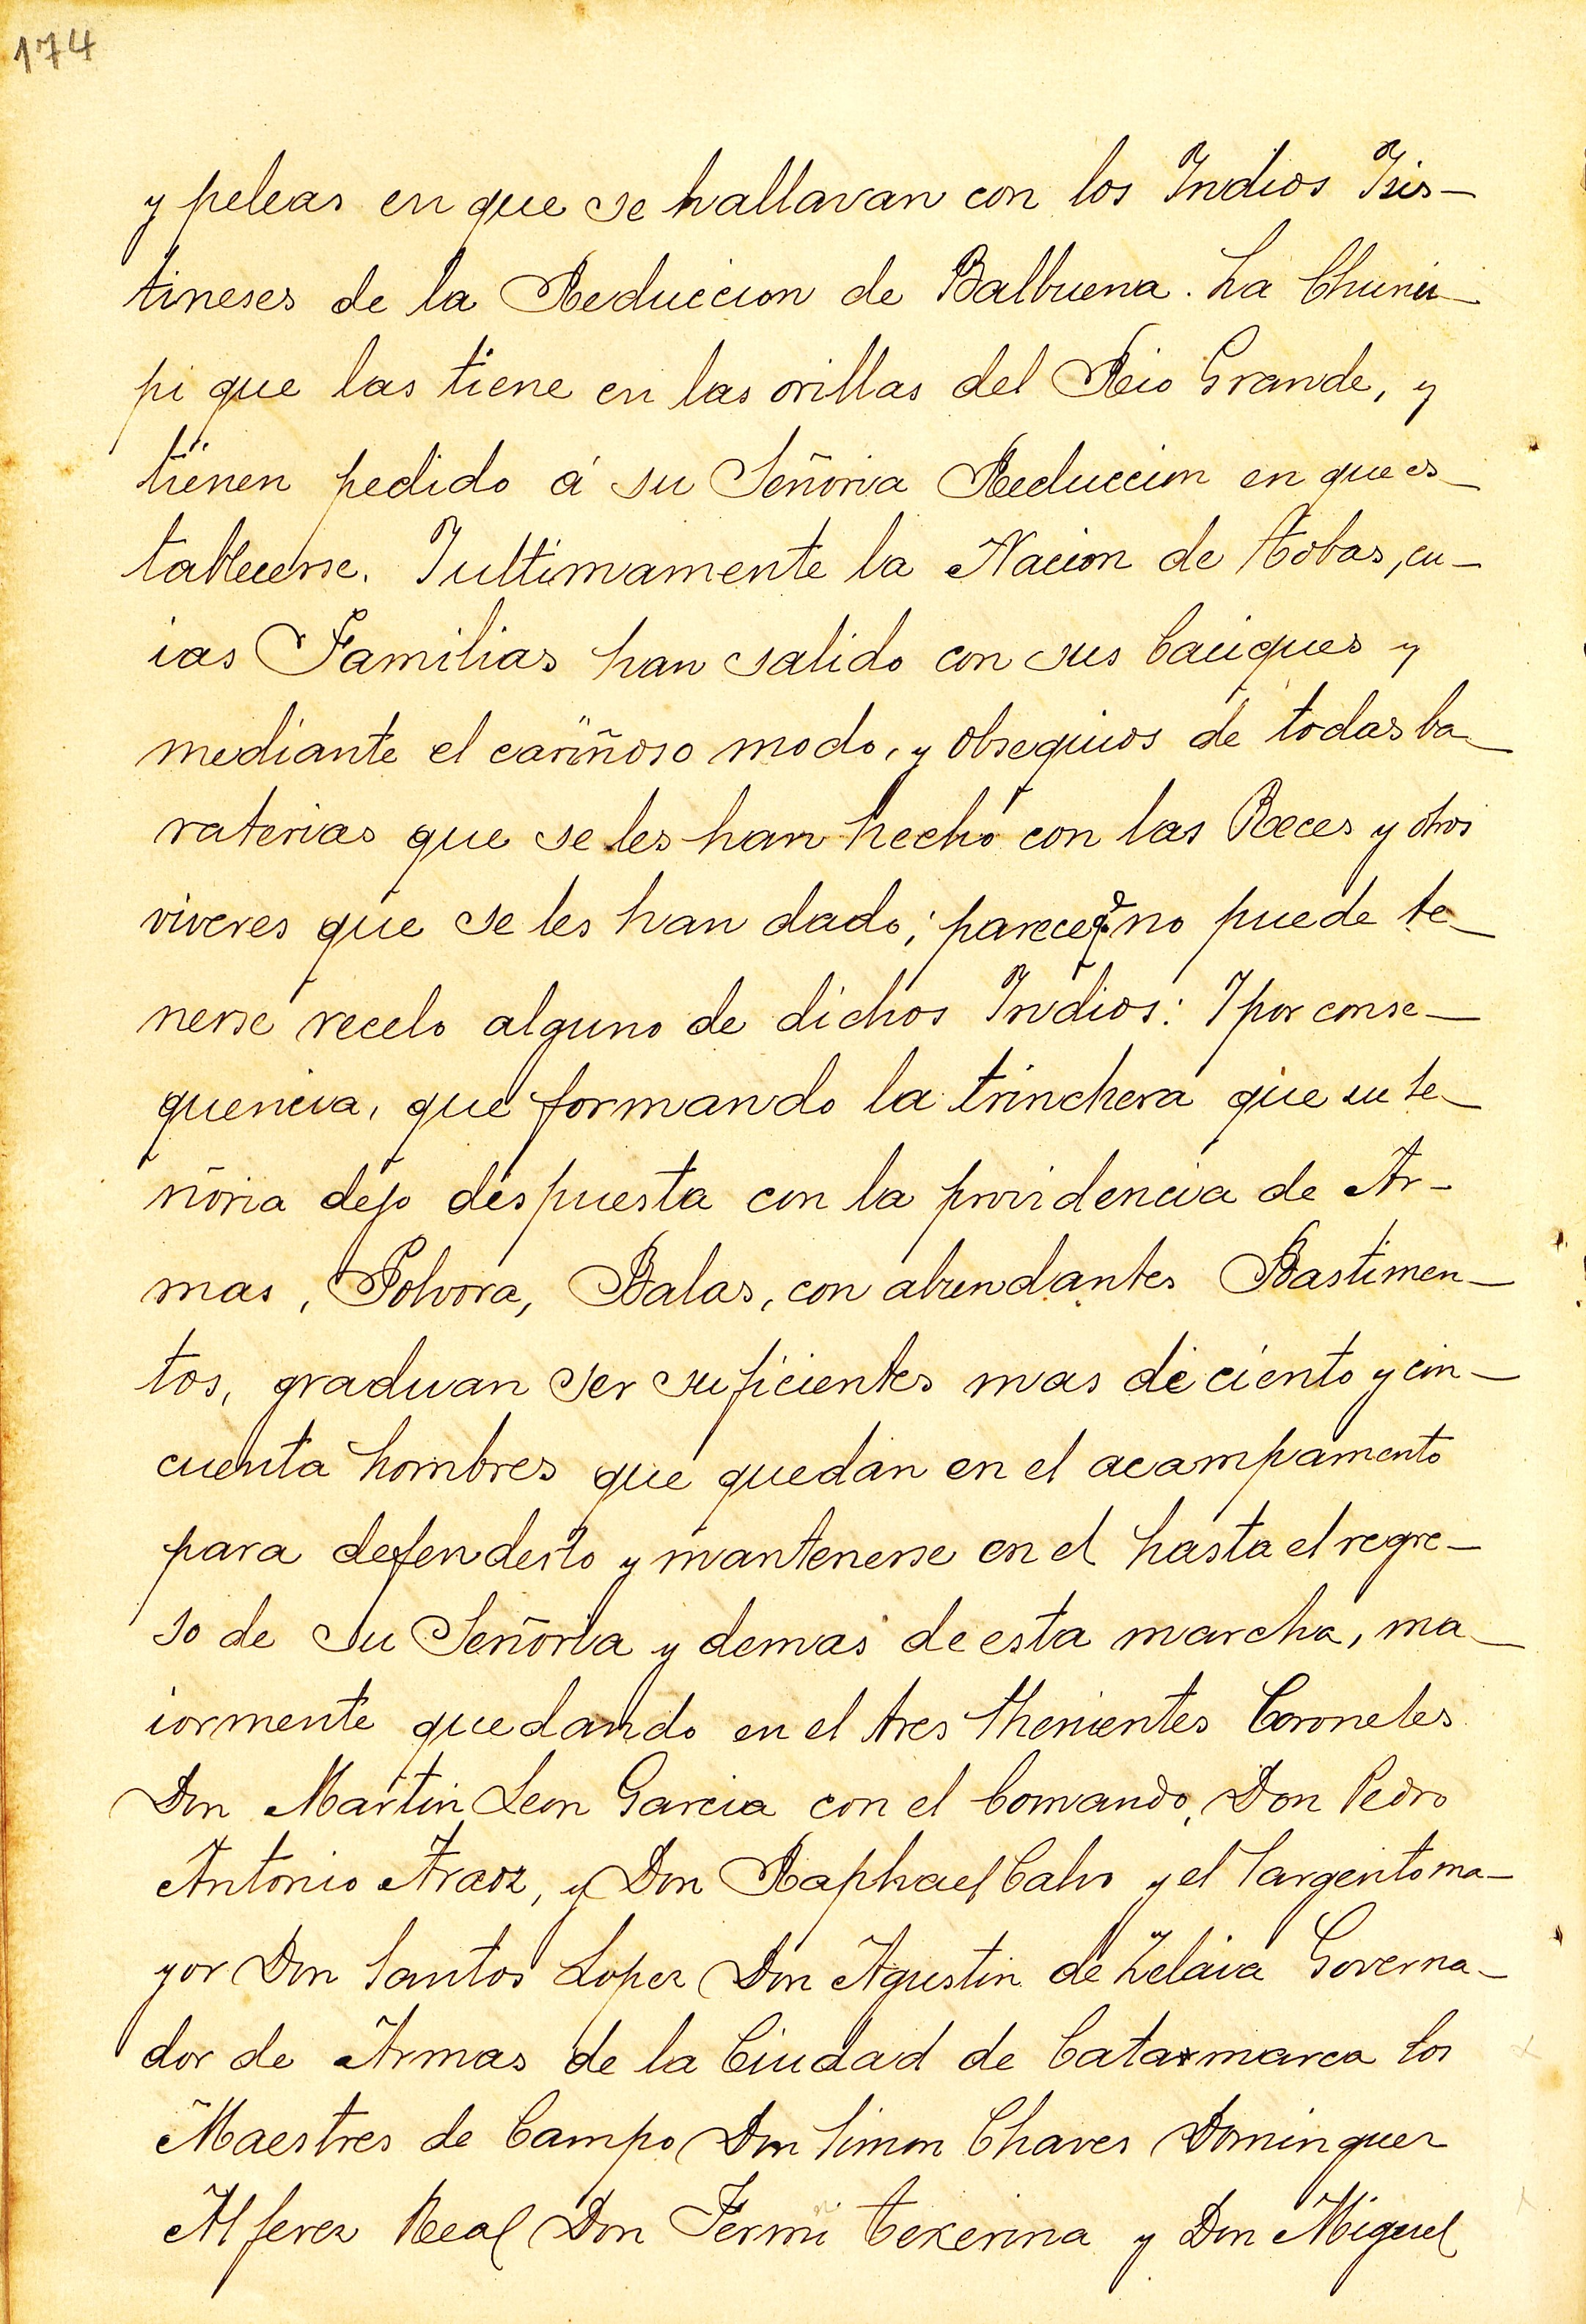 174
y peleas en que se hallavan con los Indios Isis-
tineses de la Reduccion de Balbuena. La Chunu-
pi que las tiene en las orillas del Rio Grande, y
tienen pedido á su Señoria Reduccion en que es-
tablecerse. I ultimamente la Nacion de Tobas, cu-
ias Familias han salido con sus Caciques y
mediante el cariñoso modo, y obsequios de todas ba-
raterias que se les han hecho con las Reces y otros
viveres que se les han dado; parece q.e no puede te-
nerse recelo alguno de dichos Indios: I por conse-
quencia, que formando la trinchera que su Se-
ñoria dejo despuesta con la providencia de Ar-
mas, Polvora, Balas, con abundantes Bastimen-
tos, graduan ser suficientes mas de ciento y cin-
cuenta hombres que quedan en el acampamento
para defenderlo y mantenerse en el hasta el regre-
so de Su Señoria y demas de esta marcha, ma-
iormente quedando en el tres Thenientes Coroneles
Don Martin Leon Garcia con el Comando, Don Pedro
Antonio Araoz, y Don Raphael Calvo y el Sargento ma-
yor Don Santos Lopez Don Agustin de Zelaia Governa-
dor de Armas de la Ciudad de Catamarca los
Maestres de Campo Don Simon Chaves Dominguez
Alferez Real Don Fermi Texerina y Don Miguel